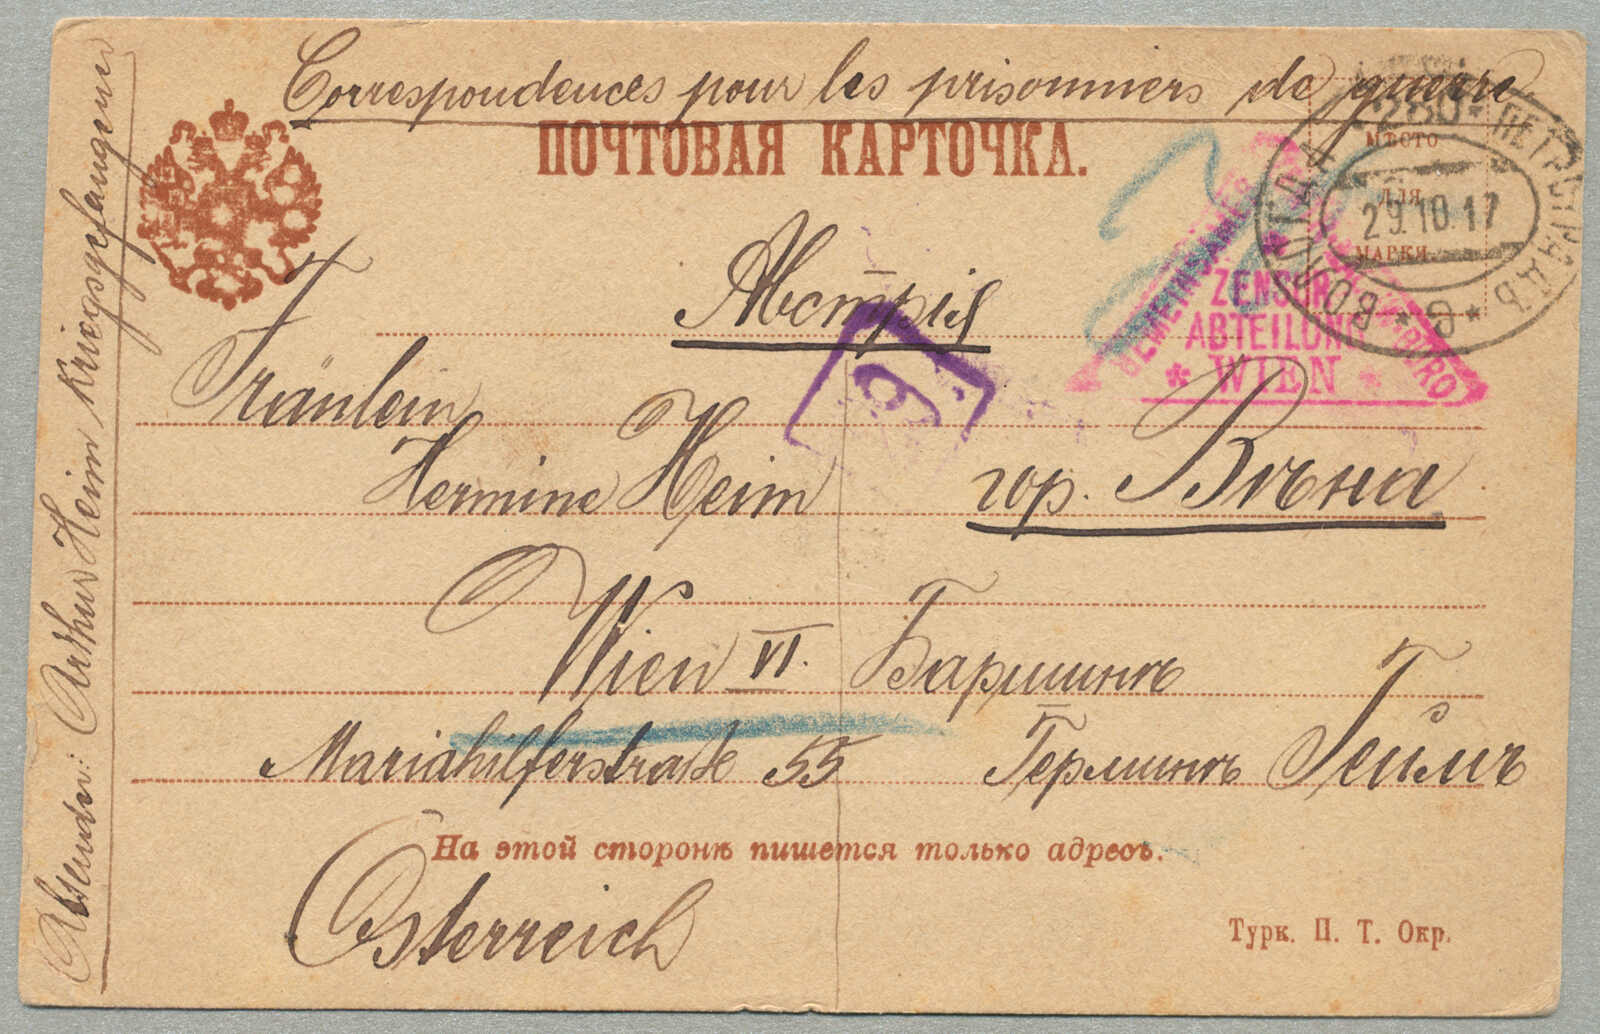 Correspondences pour les prisonniers de guerre
ПОЧТОВАЯ КАРТОЧКА.
МѢСТО
ДЛЯ
МАРКИ.
ПЕТРОГРАДЪ
29.10.17
GEMEINSAMES
ZENSUR
ABTEILUNG
* WIEN *
Австрія
Fräulein
Hermine Heim
гор. Вѣна
Wien VI.
Баришнѣ
Mariahilferstraße 55
Герминѣ Геймъ
На этой сторонѣ пишется только адресъ.
Österreich
Турк. П. Т. Окр.
Absender: Arthur Heim Kriegsgefangener